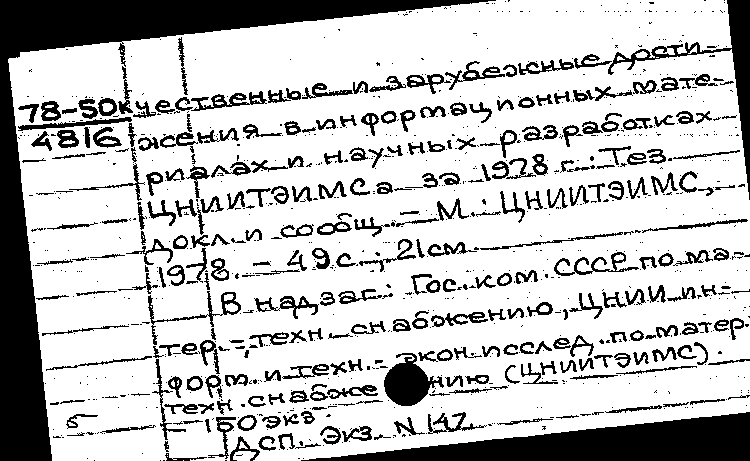 78-50кчественные и зарубежные дости-
4816 жения в информационных мате-
риалах и научных разработках
ЦНИИТЭИМСа за 1978 г.: Тез.
докл. и сообщ. – М.: ЦНИИТЭИМС,
1978. – 49 с.; 21 см.
В надзаг.: Гос. ком. СССР по ма-
тер.-техн. снабжению, ЦНИИ ин-
форм. и техн.-экон. исслед. по матер.
техн. снабжению (ЦНИИТЭИМС).
5 – 150 экз.
ДСП. Экз. N 147.